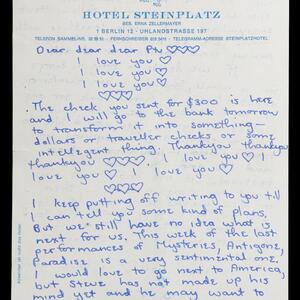 HOTEL STEINPLATZ
BES. ERNA ZELLERMAYER
1 BERLIN 12 - UHLANDSTRASSE 197
Dear dear dear Ptr ♡♡♡♡
I love you ♡
I love you ♡
I love you ♡
♡♡♡♡
The check you sent for $300 is here
and I will go to the bank tomorrow
to transform it into something—
dollars or traveller checks or some
intellegent thing. Thankyou thankyou
thankyou ♡♡♡♡ I love you ♡ I
love you ♡ I love you ♡
♡♡♡♡
I keep putting off writing to you till
I can tell you some kind of plans,
But we still have no idea what is
next for us. This week of the last
performances of Mysteries, Antigone,
Paradise is a very sentimental one.
I would love to go next to America,
but Steve has not made up his
mind yet and he may want to